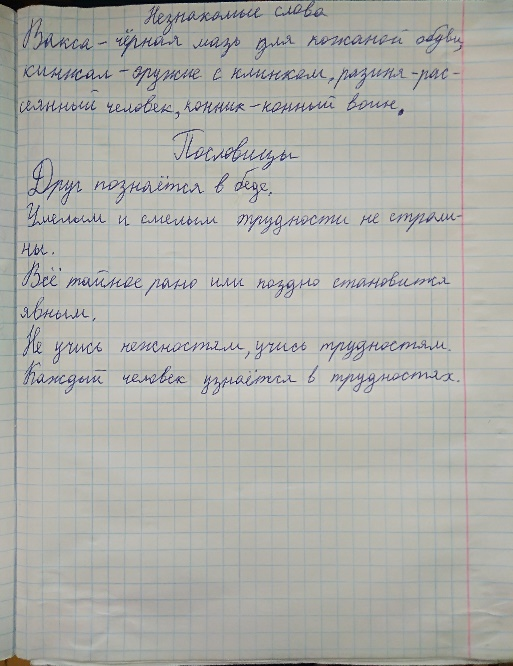 Незнакомые слова
Вакса - чёрная мазь для кожаной обуви,
кинжал - оружие с клинком, разиня - рас-
сеянный человек, конник - конный воин.
Пословицы
Друг познаётся в беде.
Умелым и смелым трудности не страш-
ны.
Всё тайное рано или поздно становится
явным.
Не учись нежностям, учись трудностям.
Каждый человек узнаётся в трудностях.